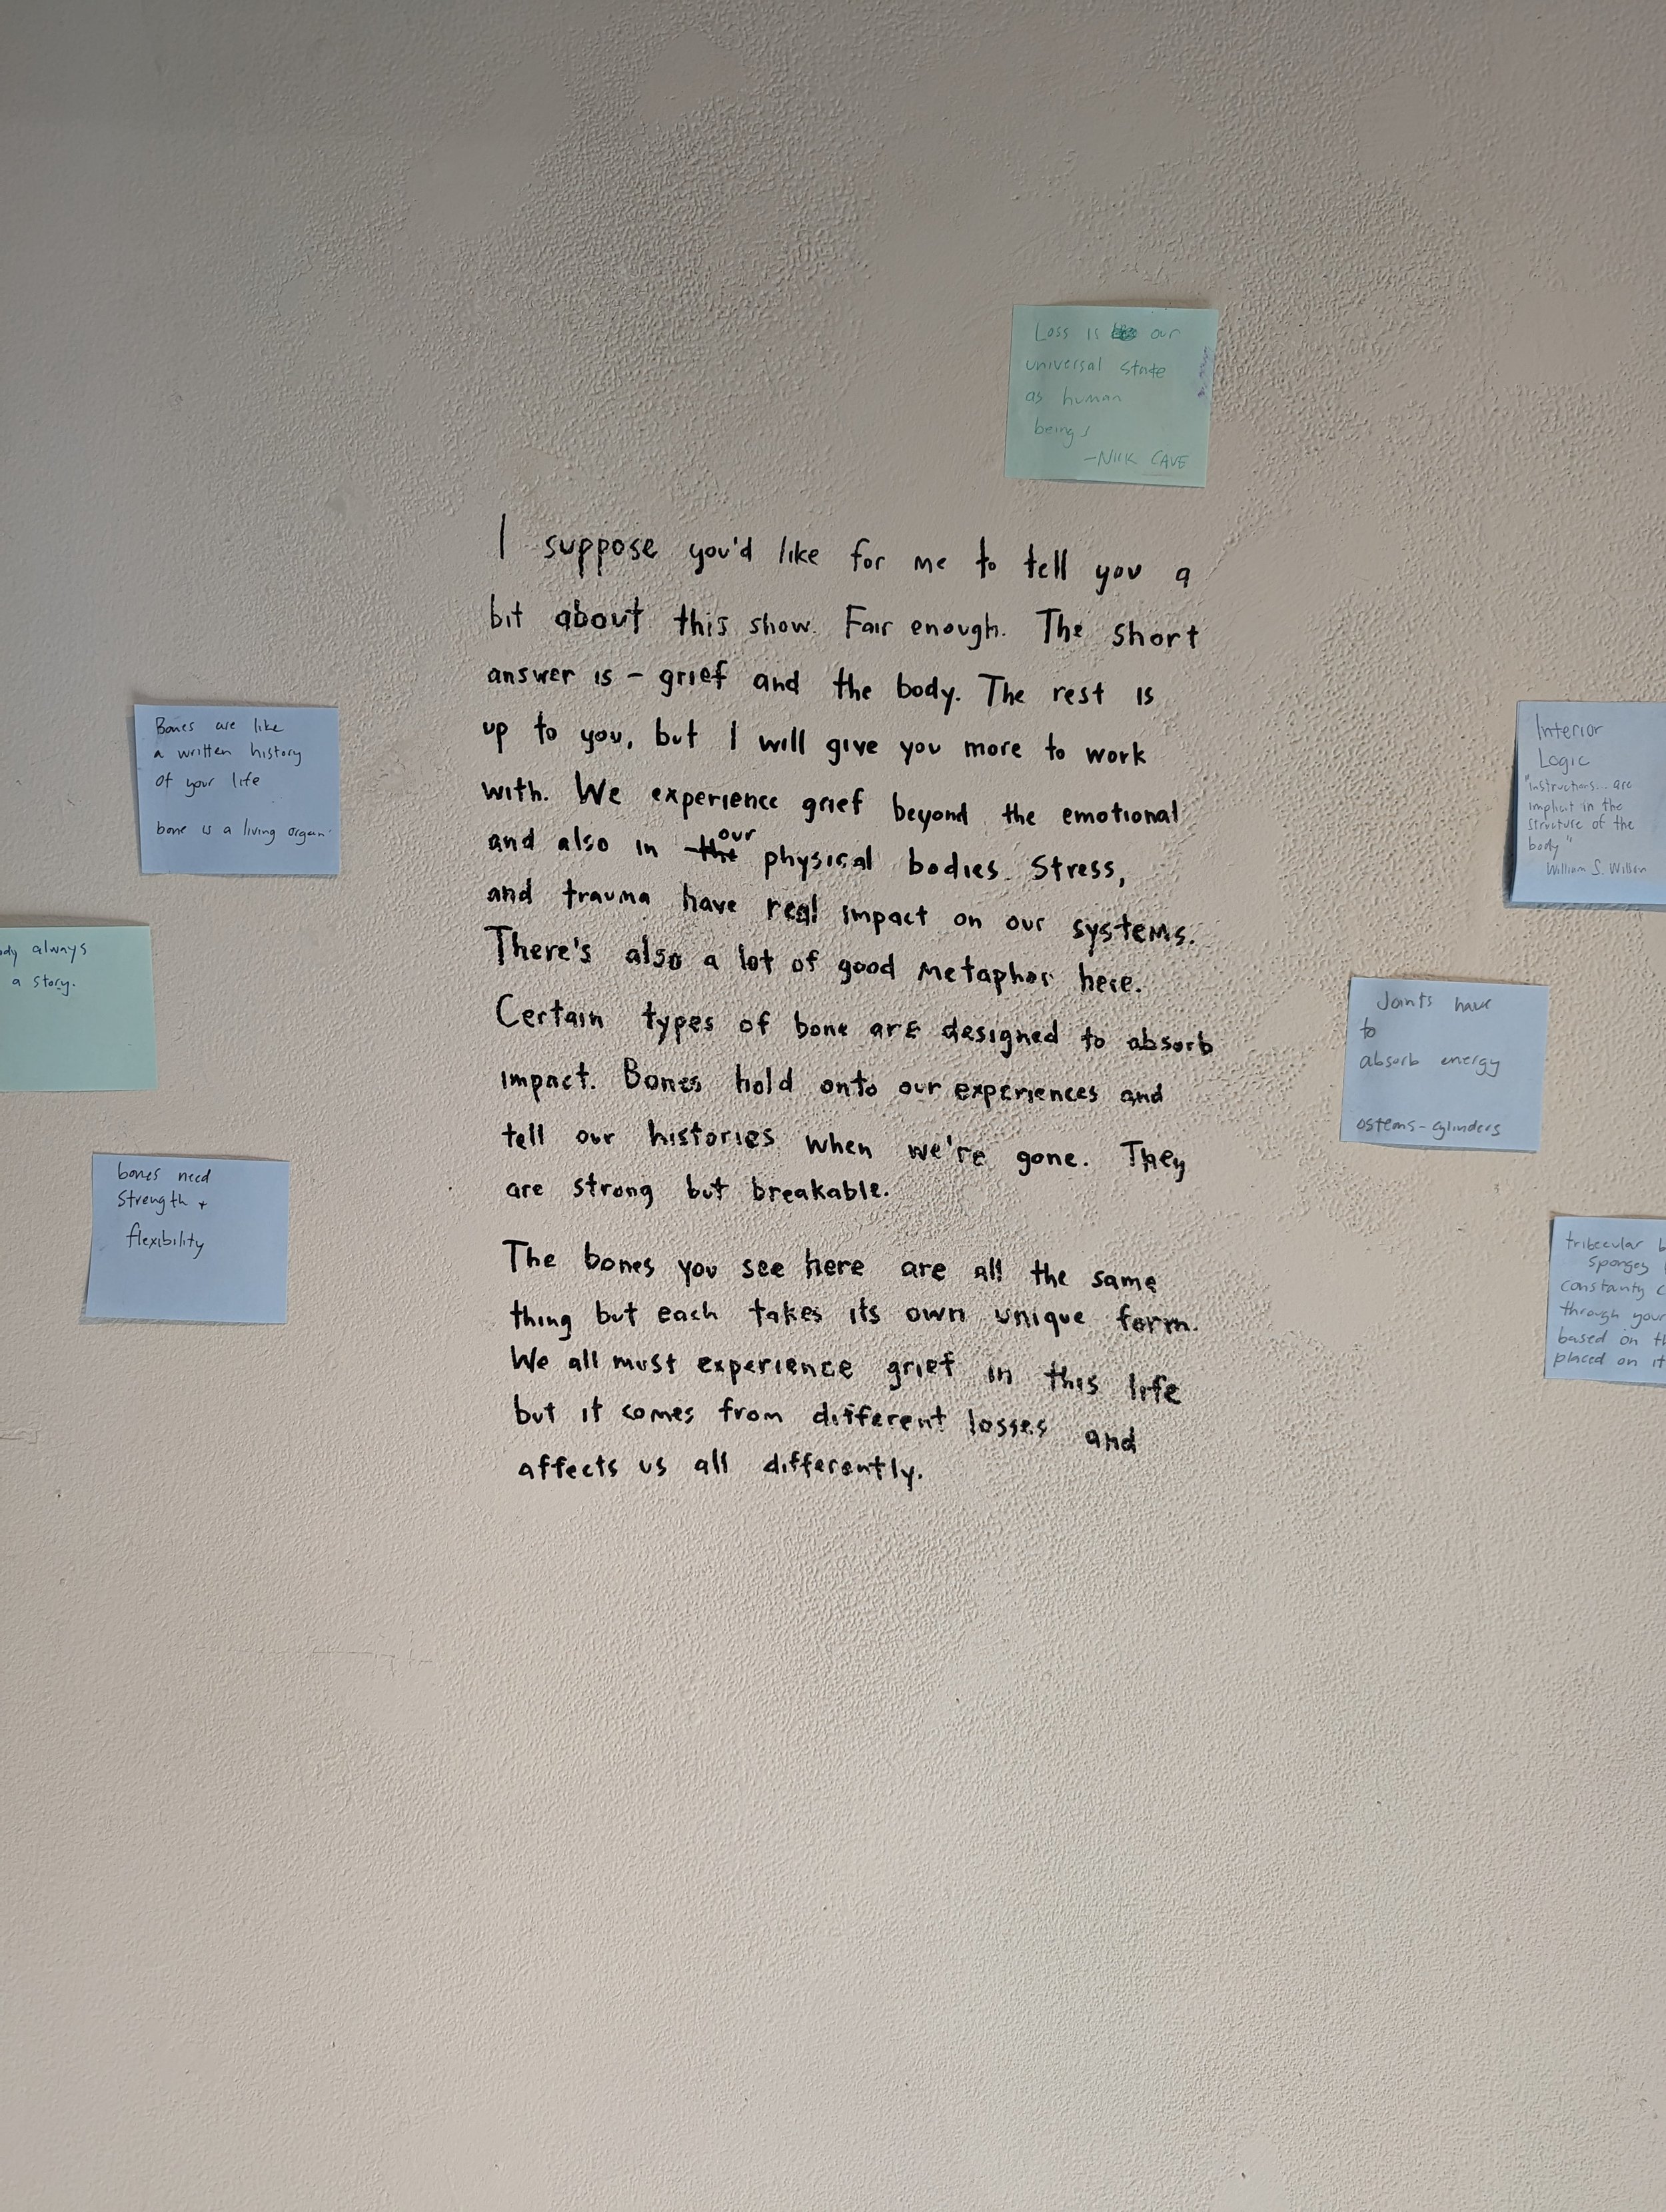 Loss is our
universal state
as human
beings
-NICK CAVE
I suppose you'd like for me to tell you a
bit about this show. Fair enough. The short
answer is - grief and the body. The rest is
up to you, but I will give you more to work
with. We experience grief beyond the emotional
and also in the our physical bodies. Stress,
and trauma have real impact on our systems.
There's also a lot of good metaphor here.
Certain types of bone are designed to absorb
impact. Bones hold onto our experiences and
tell our histories when we're gone. They
are strong but breakable.
The bones you see here are all the same
thing but each takes its own unique form.
We all must experience grief in this life
but it comes from different losses and
affects us all differently.
Bones are like
a written history
of your life
bone is a living organ
always
a story.
bones need
strength +
flexibility
Interior
Logic
"instructions... are
implicit in the
structure of the
body"
William S. Wilson
Joints have
to
absorb energy
osteons-cylinders
sponges
constanty
through your
based on
placed on